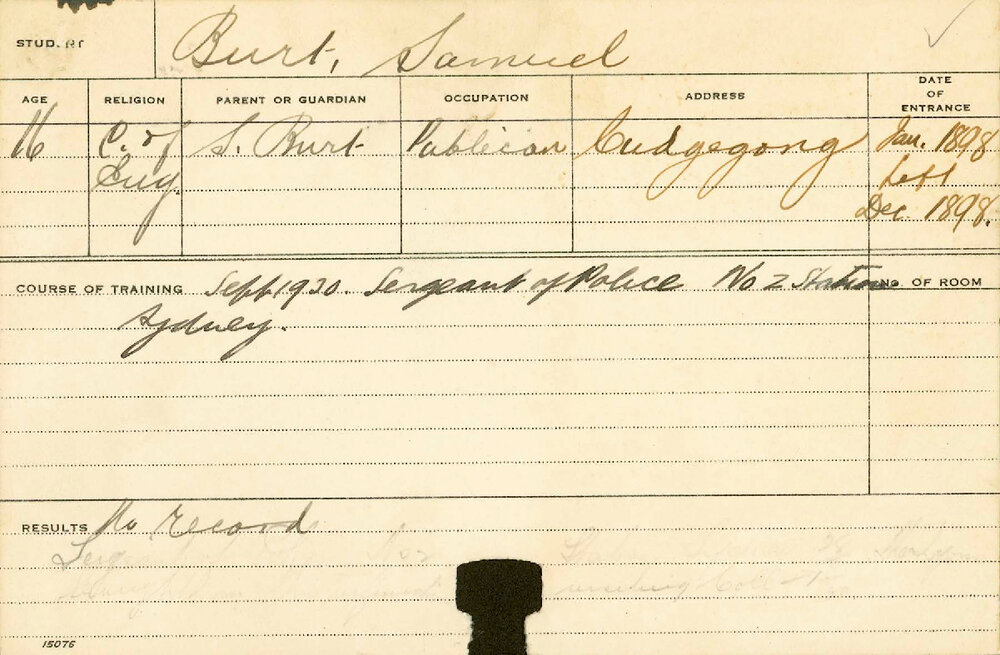 STUDENT Burt, Samuel
AGE RELIGION PARENT OR GUARDIAN OCCUPATION ADDRESS DATE OF ENTRANCE
16 C. of S. Burt Publican Cudgegong Jan. 1898
Eng. Left
Dec 1898.
COURSE OF TRAINING Sept 1930. Sergeant of Police No 2 Station NO. OF ROOM
Sydney.
RESULTS No record
15076